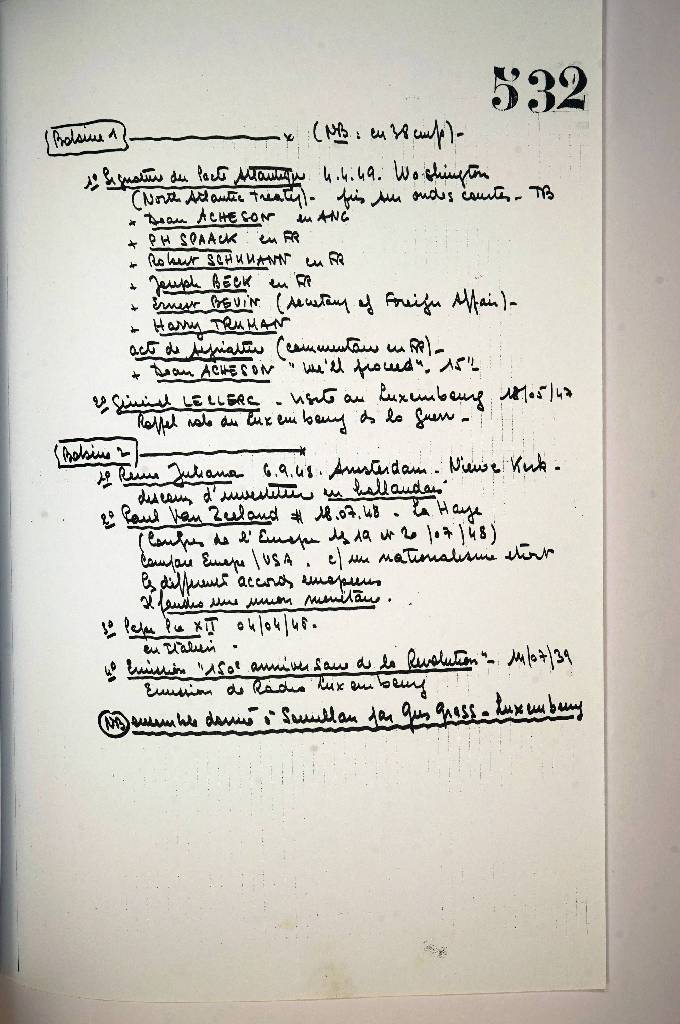 532
Bobine 1 (NB : en 38 cm/s) -
1º Signature du Pacte Atlantique 4.4.49. Washington
(North Atlantic Treaty) - pris sur ondes courtes - TB
+ Dean ACHESON en ANG
+ PH SPAACK en FR
+ Robert SCHUMANN en FR
+ Joseph BECK en FR
+ Ernest BEVIN (secretary of Foreign Affair) -
+ Harry TRUMAN
acte de signature (commentaire en FR) -
+ Dean ACHESON "we'll proceed". 15"
2º Général LECLERC - visite au Luxembourg 18/05/47
Rappel role du Luxembourg ds la guerre -
Bobine 2
1º Reine Juliana 6.9.48. Amsterdam - Nieuwe Kerk -
discours d'investiture en hollandais
2º Paul Van Zeeland 18.07.48 - La Haye
(Congrès de l'Europe les 19 et 20/07/48)
Compare Europe/USA. c/ un nationalisme étroit
les différents accords européens
Il faudra une union monétaire.
3º Pape Pie XII 04/04/48.
en Italien.
4º Emission "150e anniversaire de la Revolution" - 14/07/39
Emission de Radio Luxembourg
NB ensemble donné à par Gus Grass - Luxembourg